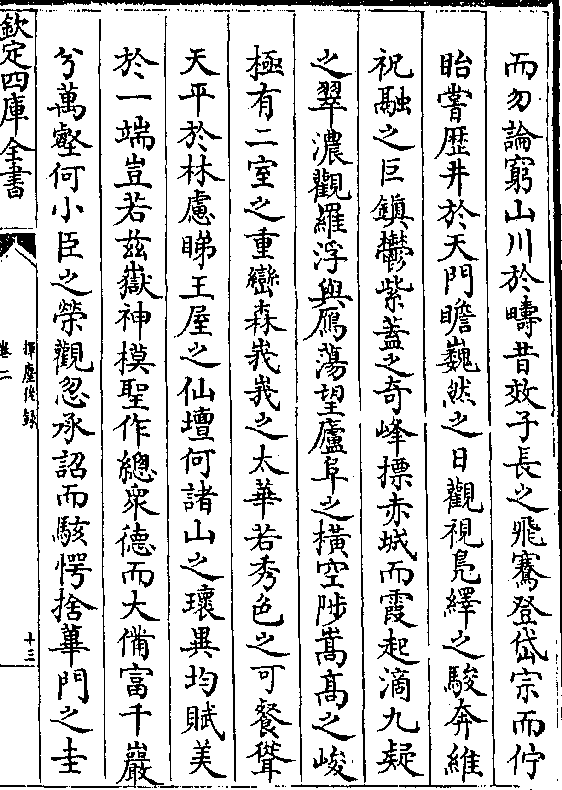 而勿論窮山川於疇昔效子長之飛騫登岱宗而佇
眙嘗歴井於天門瞻巍然之日觀視鳧繹之駿奔維
祝融之巨鎮鬱紫蓋之奇峰摽赤城而霞起滴九疑
之翠濃觀羅浮與鴈蕩望廬阜之横空陟嵩髙之峻
極有二室之重巒森峩峩之太華若秀色之可餐聳
天平於林慮睇王屋之仙壇何諸山之瓌異均賦美
於一端豈若兹嶽神模聖作總衆德而大備富千巖
兮萬壑何小臣之榮觀忽承詔而駭愕捨蓽門之圭
欽定四庫全書
揮麈後録
卷二
十三